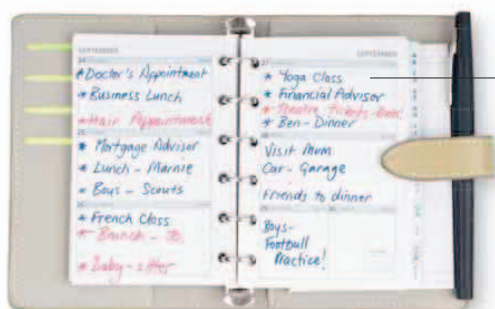 SEPTEMBER
* Doctor's Appointment
* Business Lunch
* Hair Appointment
* Mortgage Advisor
* Lunch - Marnie
* Boys - Scouts
* French Class
* Brunch -
* Baby-sitter
SEPTEMBER
* Yoga Class
* Financial Advisor
* Theatre Tickets -
* Ben - Dinner
Visit Mum
Car - Garage
Friends to dinner
Boys -
Football
Practice!